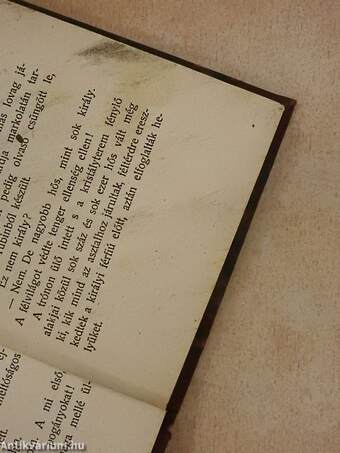 más lovag já-
markolatán tar-
pedig olvasó csüngött le,
rubinból készült.
Ez nem király?
— Nem. De nagyobb hős, mint sok király.
A félvilágot védte tenger ellenség ellen!
A trónon ülő intett s a kristályterem fénylő
alakjai közül sok száz és sok ezer hős vált még
ki, kik mind az asztalhoz járultak, félterdre eresz-
kedtek a királyi férfiú előtt, aztán elfoglalták he-
lyüket.
méltóságos
A mi első,
pogányokat!
mellé ül-
Antikvarium.hu